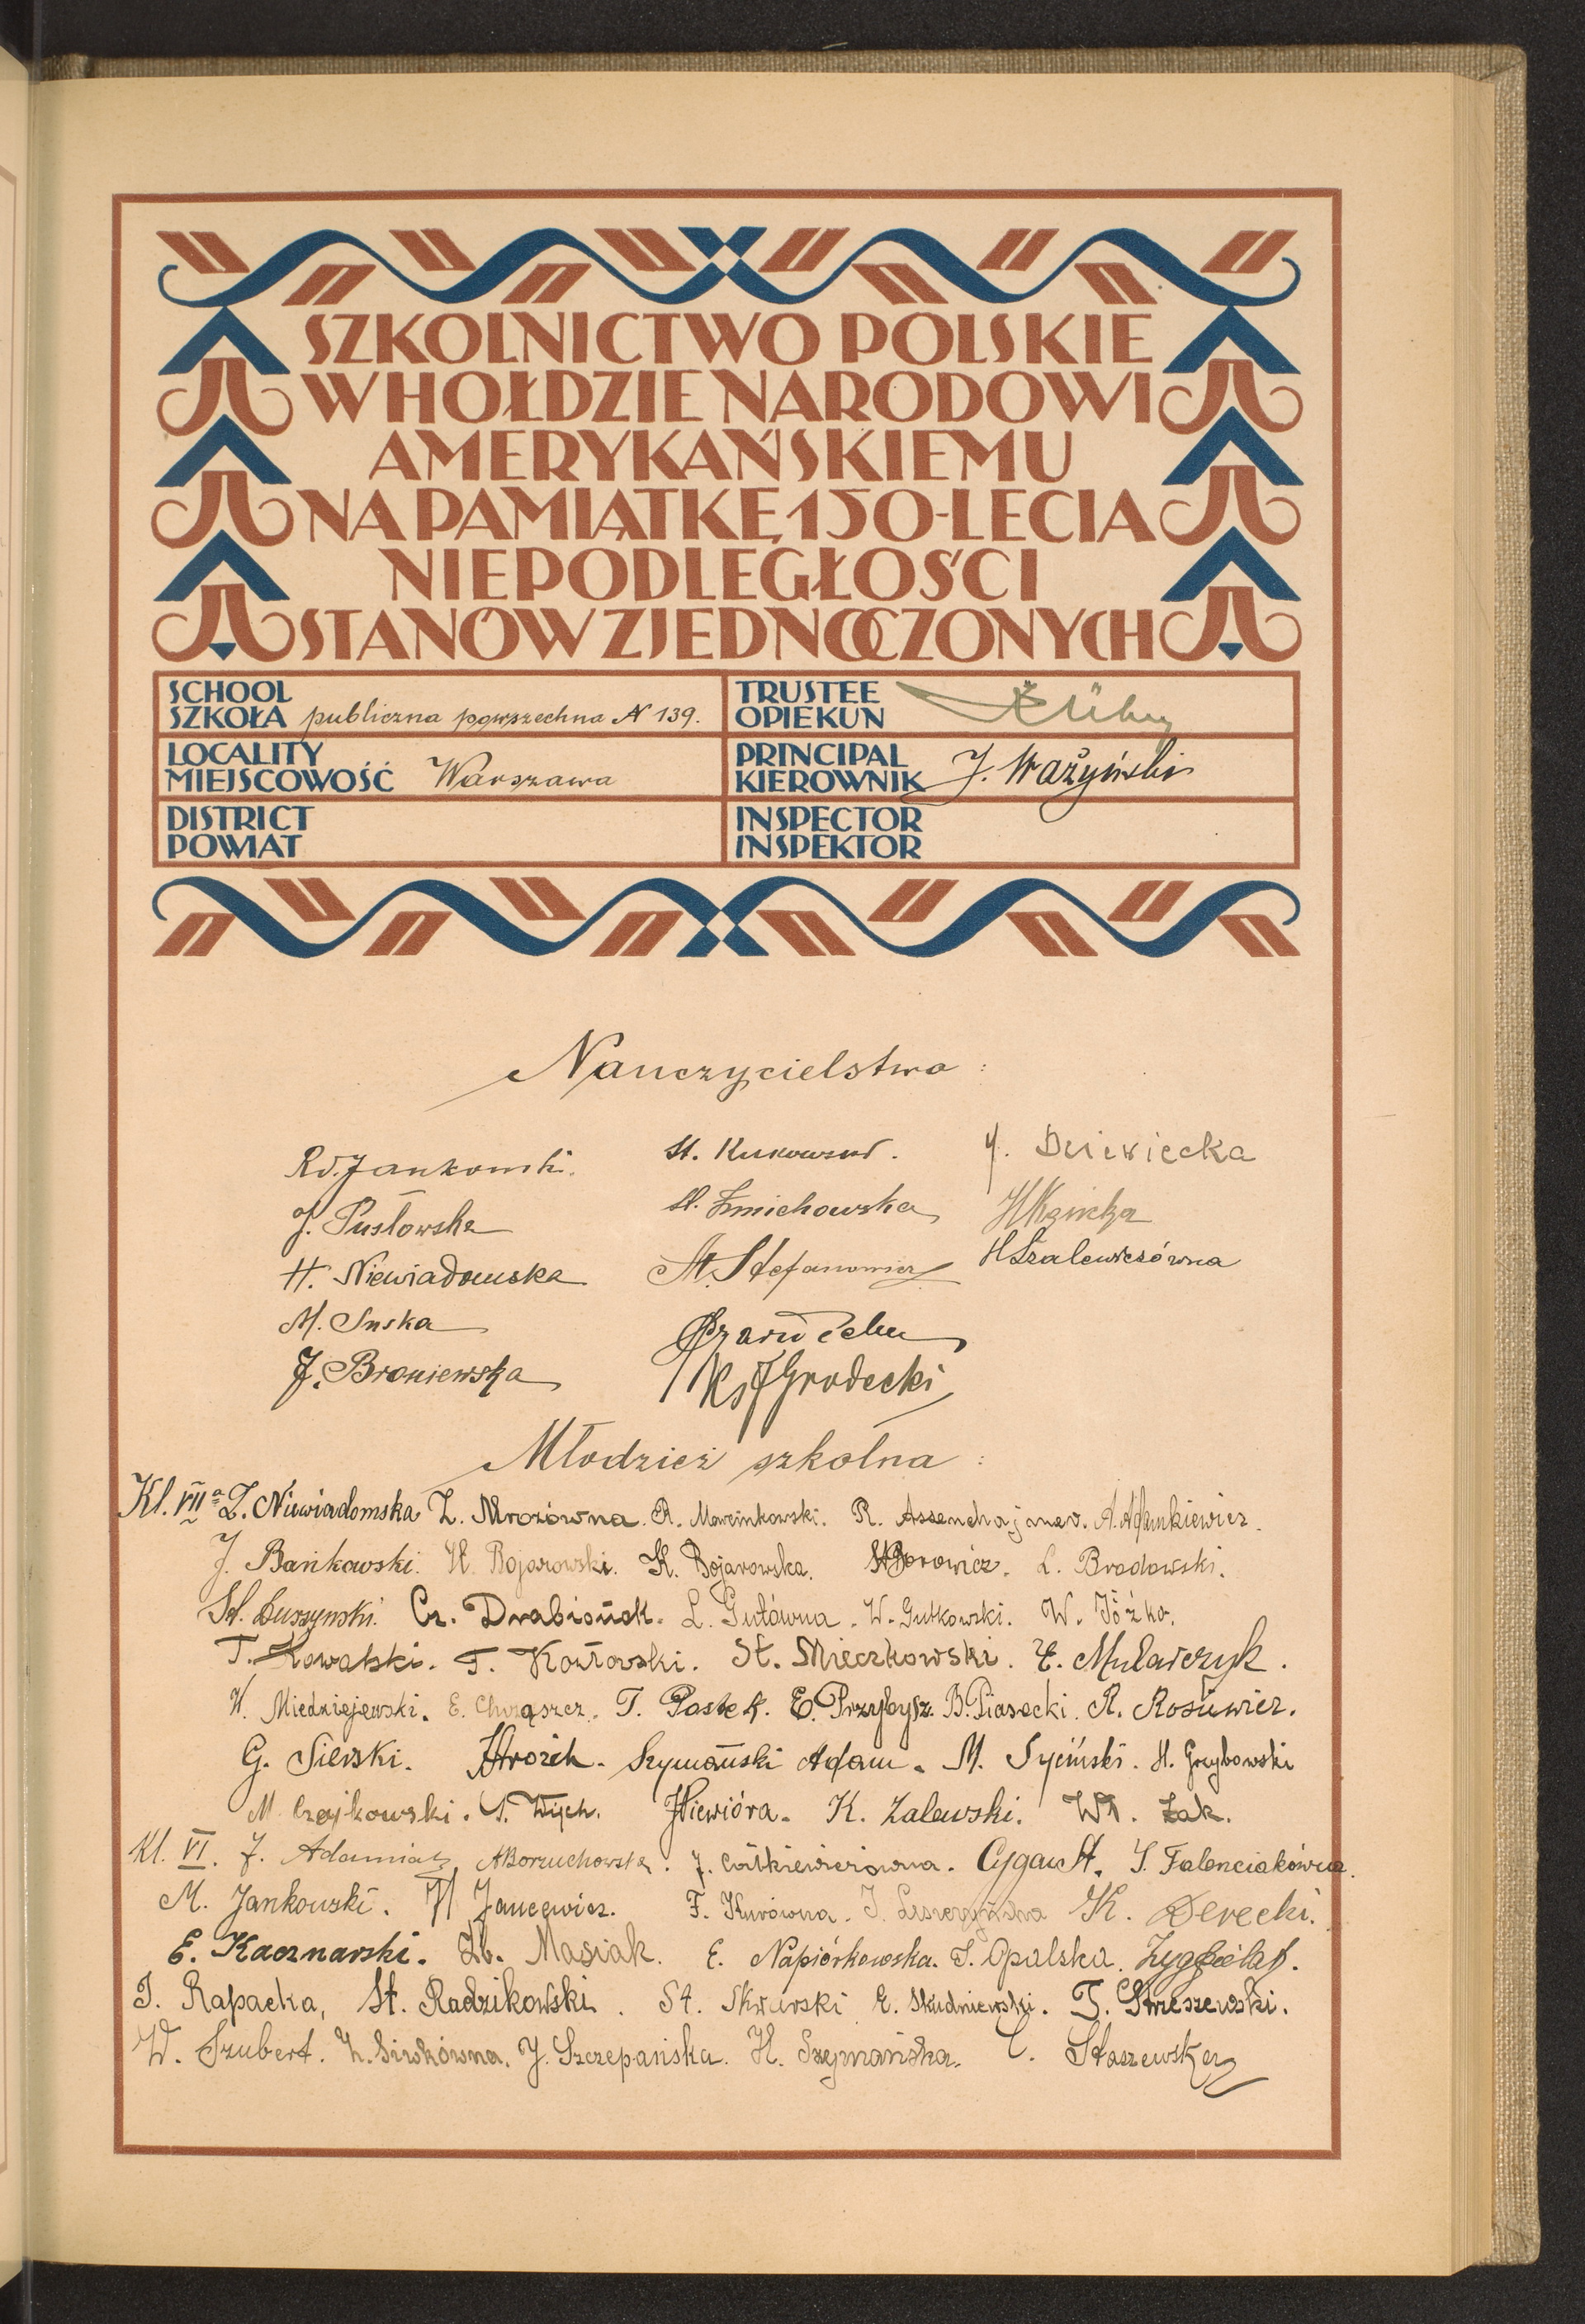 SZKOLNICTWO POLSKIE
W HOŁDZIE NARODOWI
AMERYKAŃSKIEMU
NA PAMIĄTKĘ 150-LECIA
NIEPODLEGŁOŚCI
STANÓW ZJEDNOCZONYCH
SCHOOL
SZKOŁA publiczna powszechna N 139.
TRUSTEE
OPIEKUN
LOCALITY
MIEJSCOWOŚĆ Warszawa
PRINCIPAL
KIEROWNIK J. Ważyński
DISTRICT
POWIAT
INSPECTOR
INSPEKTOR
Nauczycielstwo:
Rd. Jankowski.
J. Pusłowska
H. Niewiadomska
M. Suska
J. Broniewska
St.
St. Żmichowska
St. Stefanowicz
Ks J Grodecki
J. Dziewiecka
H Szalewiczówna
Młodzież szkolna:
Kl. VIIa Z. Niewiadomska Z. Mrozówna. A. Marcinkowski. R. A. Adamkiewicz.
J. Bańkowski. H. Bojarowski. K. Bojarowska. Borowicz. L. Brodowski.
St. Buszynski. Cz. Drabionek. L. Gutówna. W. Gutkowski. W. Jóźko.
T. Kowalski. T. Kozłowski. St. Mieczkowski. E. Mularczyk.
W. Miedniejewski. E. Chrząszcz. T. Pastek. E. Przybysz. B. Piasecki. R. Rosiewicz.
G. Sierski. Szymański Adam. M. Syciński. H. Grzybowski
M. Czajkowski. S. Wych. J Wiewióra. K. Zalewski. Wł. Żak.
Kl. VI. J. Adamiak, A Borzuchowska. J. Cygan St. S. Falenciakówna.
M. Jankowski. H Jancewicz. F. Kurówna. J. K. Derecki.
E. Kacznarski. Zb. Masiak. E. Napiórkowska. S. Opalska.
J. Rapacka, St. Radzikowski. St. Skwarski E. Skudniewski. T. Streszewski.
W. Szubert. Z. Siwkówna. J. Szczepańska. H. Szymańska. C. Staszewska